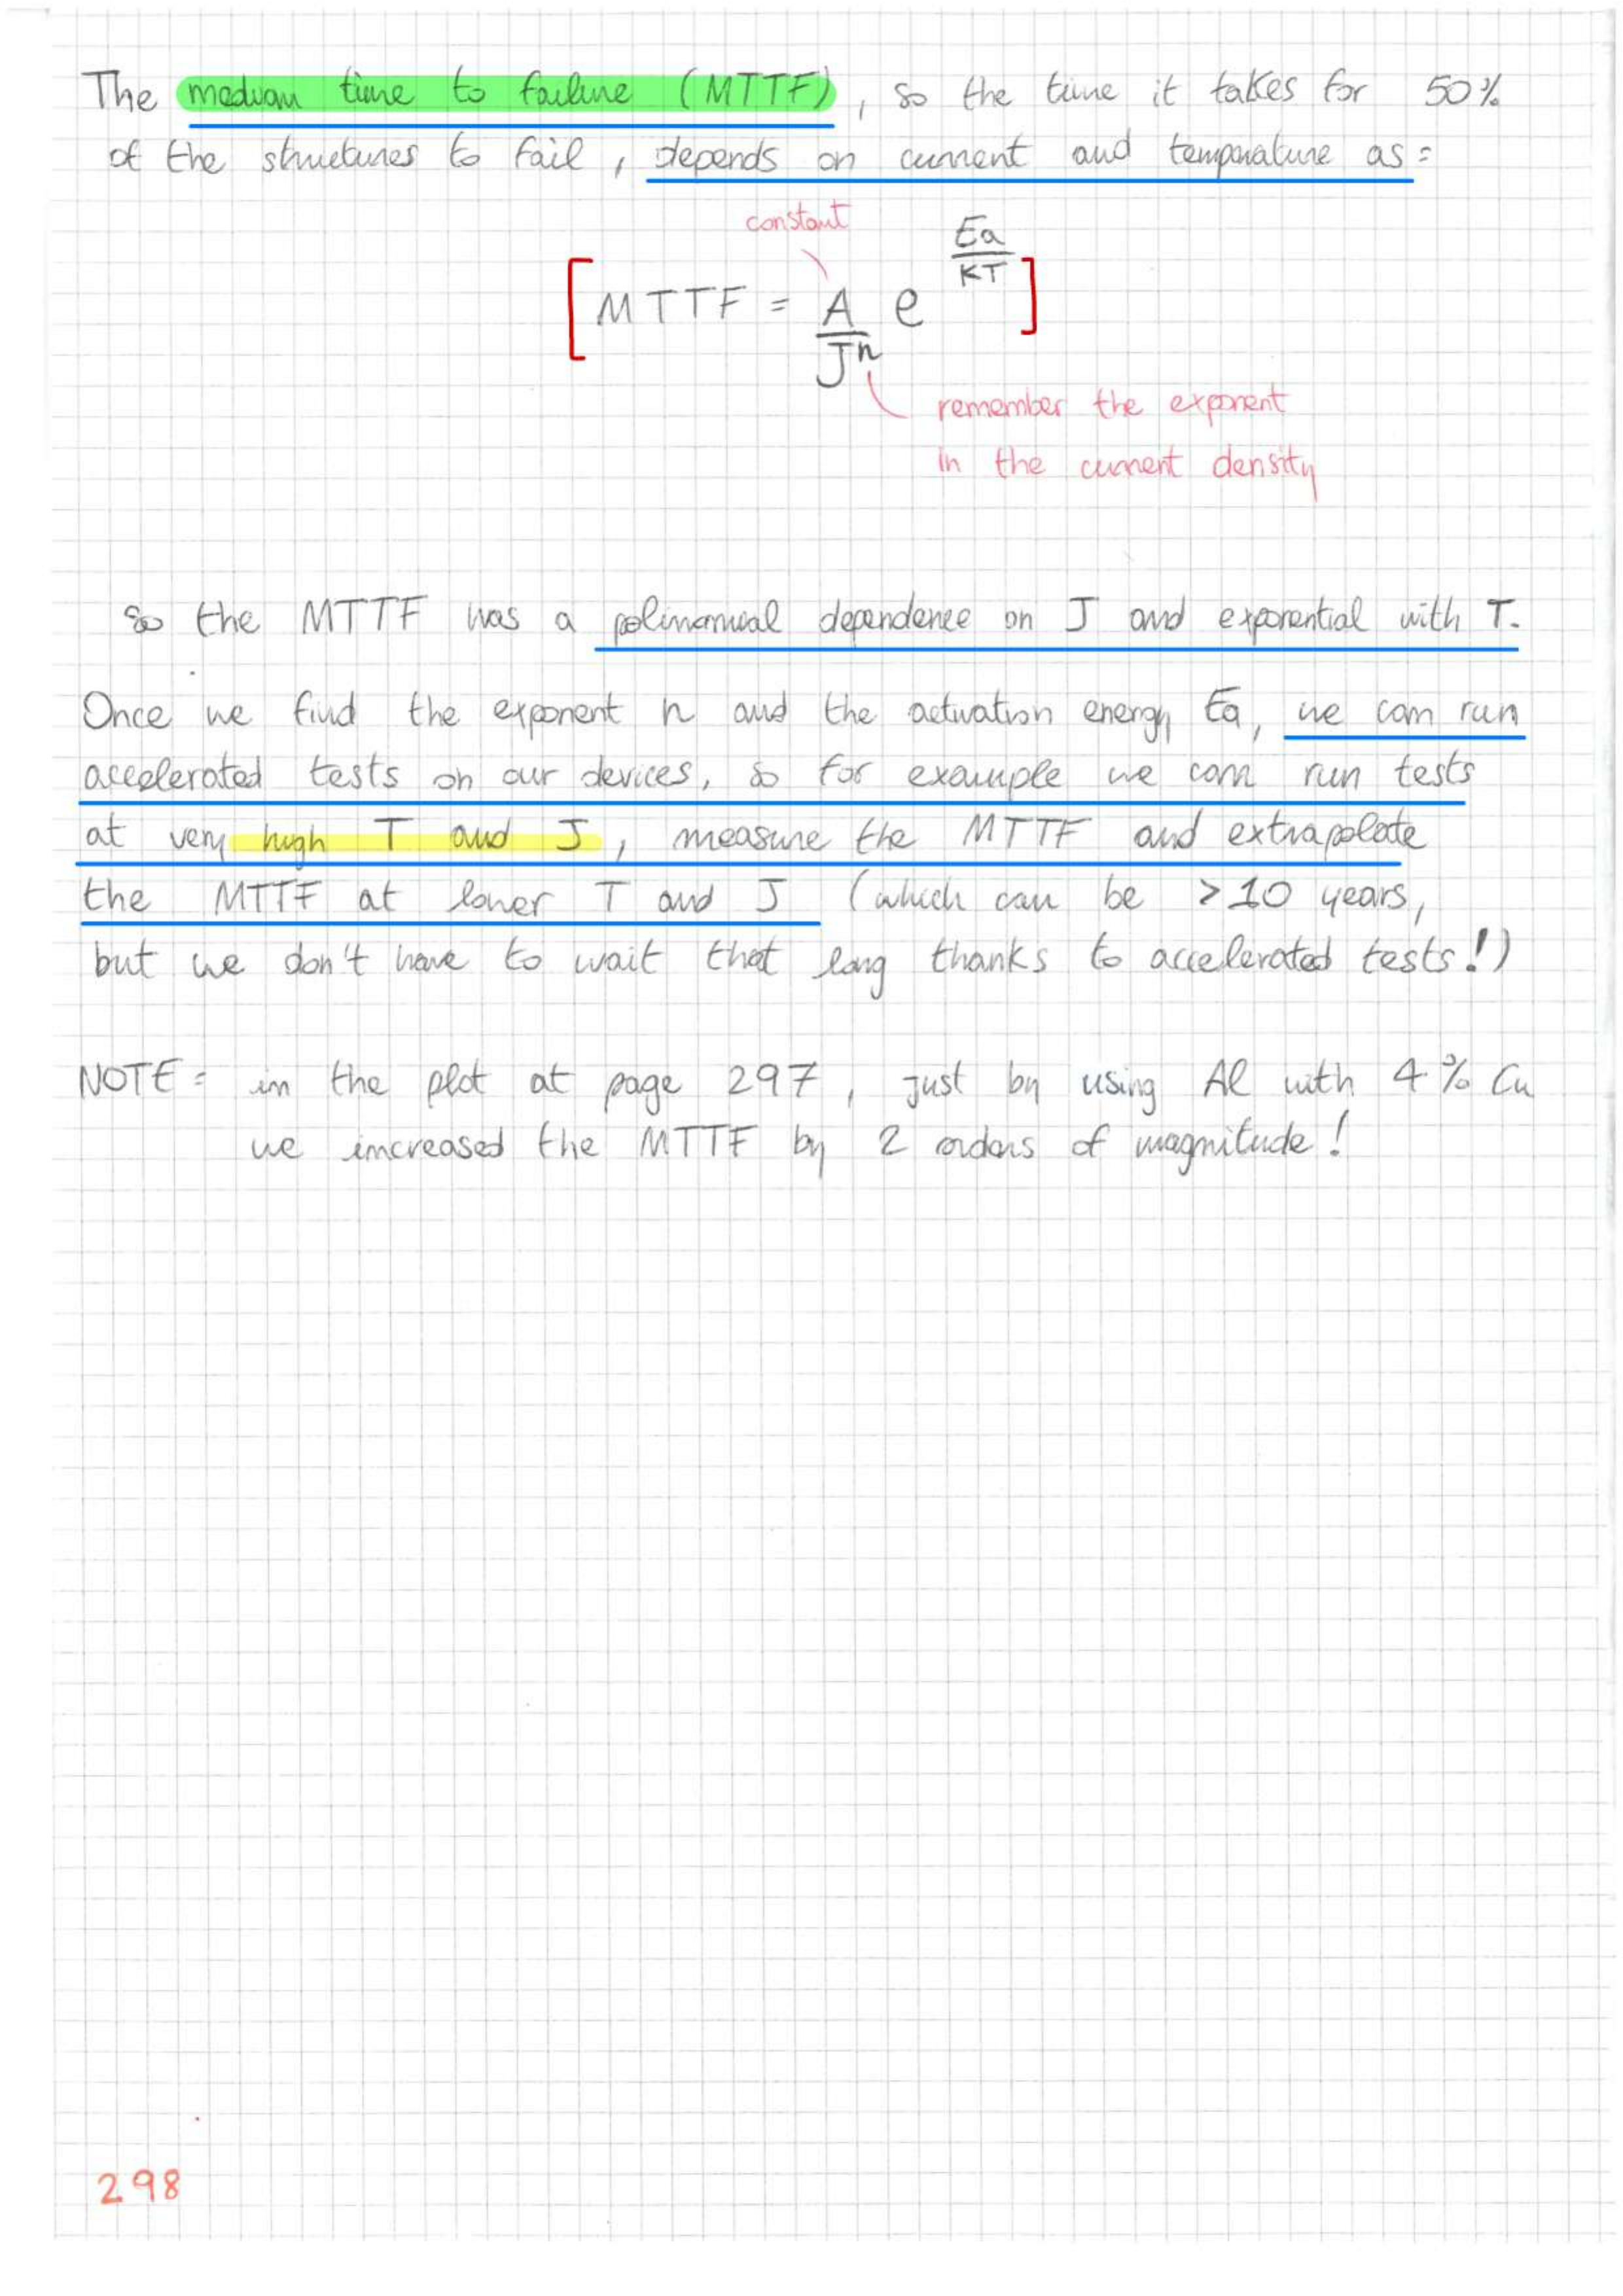 The median time to failure (MTTF), so the time it takes for 50%
of the structures to fail, depends on current and temperature as:
constant
[MTTF = A/J^n e^(Ea/KT)]
remember the exponent
in the current density
so the MTTF has a polinomial dependence on J and exponential with T.
Once we find the exponent n and the activation energy Ea, we can run
accelerated tests on our devices, so for example we can run tests
at very high T and J, measure the MTTF and extrapolate
the MTTF at lower T and J (which can be >10 years,
but we don't have to wait that long thanks to accelerated tests!)
NOTE: in the plot at page 297, just by using Al with 4% Cu
we increased the MTTF by 2 orders of magnitude!
298